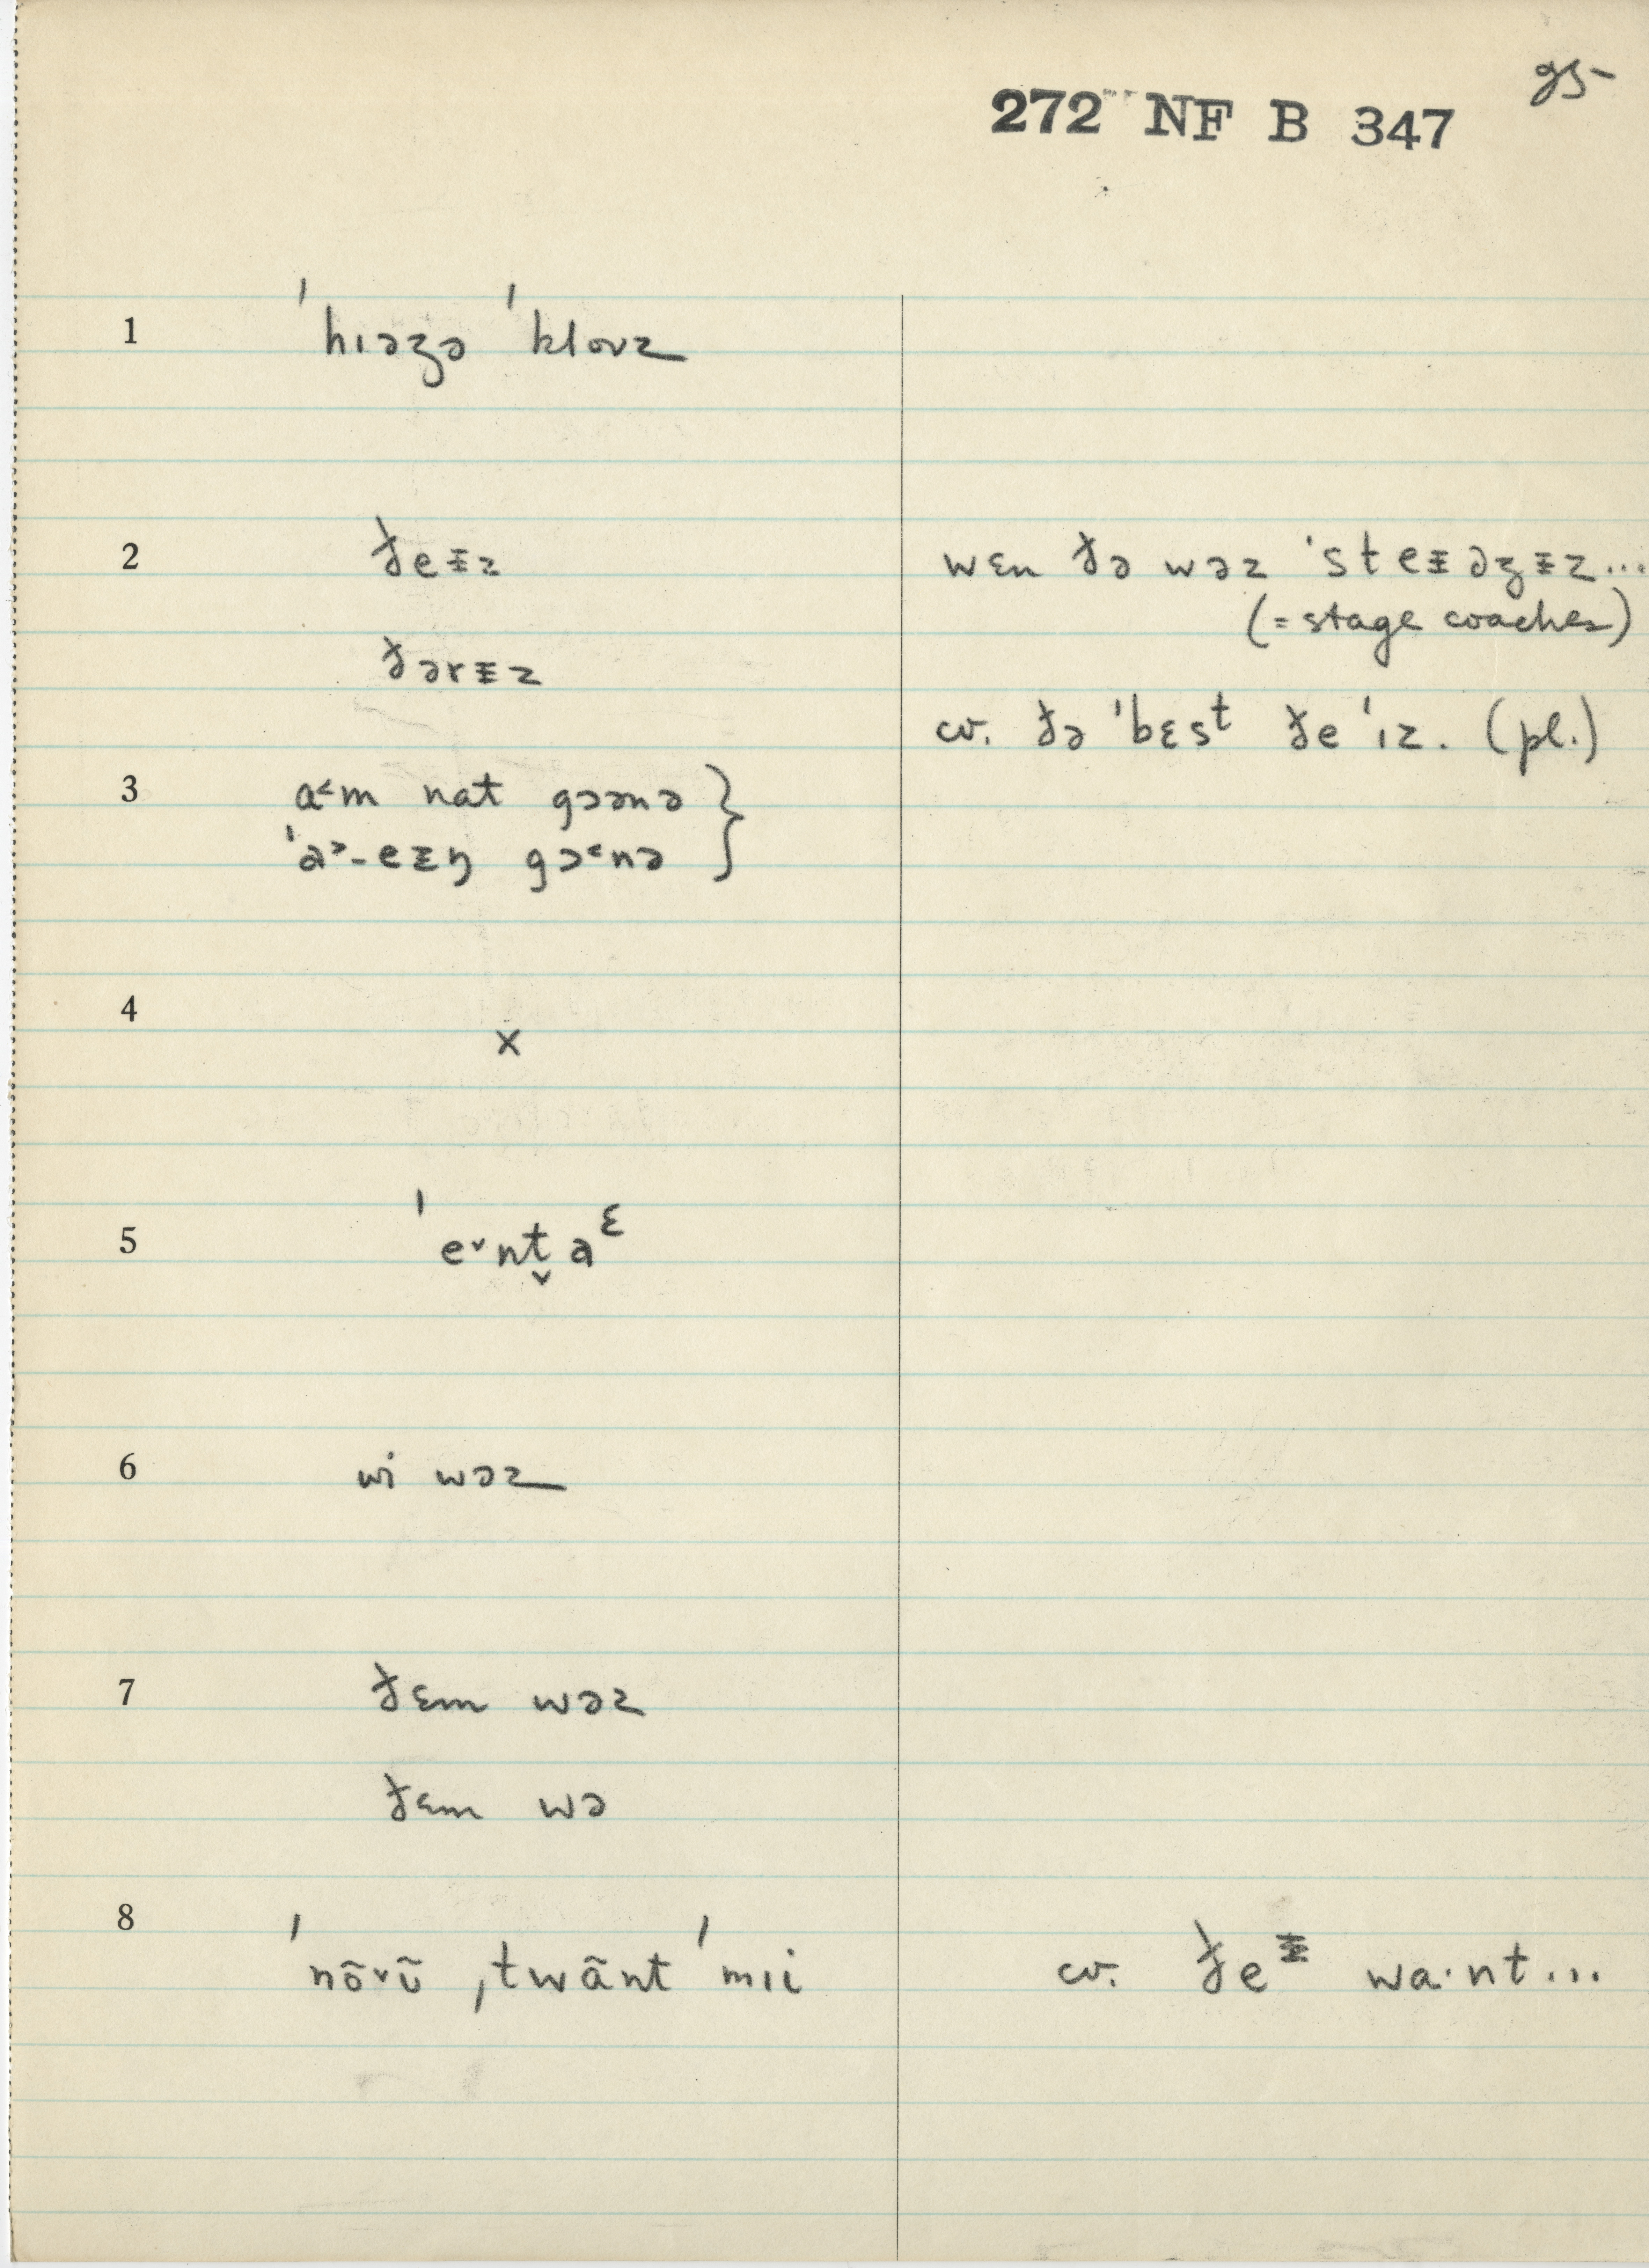 25
272 NF B 347
1 ˈhɪəzə ˈkloʊz
2 ðeᵻz wɛn ðə wəz ˈsteᵻəʒᵻz...
(= stage coaches)
ðərᵻz
cv. ðə ˈbɛsᵗ ðeˈɪz. (pl.)
3 a˂m nat gɔənə }
ˈa˃-eᵻŋ gɔ˂nə }
4 x
5 ˈe˅nt̬aᵋ
6 wi wəz
7 ðɛm wəz
ðɛm wə
8 ˈnõ˅ʊ̃ ˌtwãnt ˈmɪi cv. ðeᵻ wa·nt...